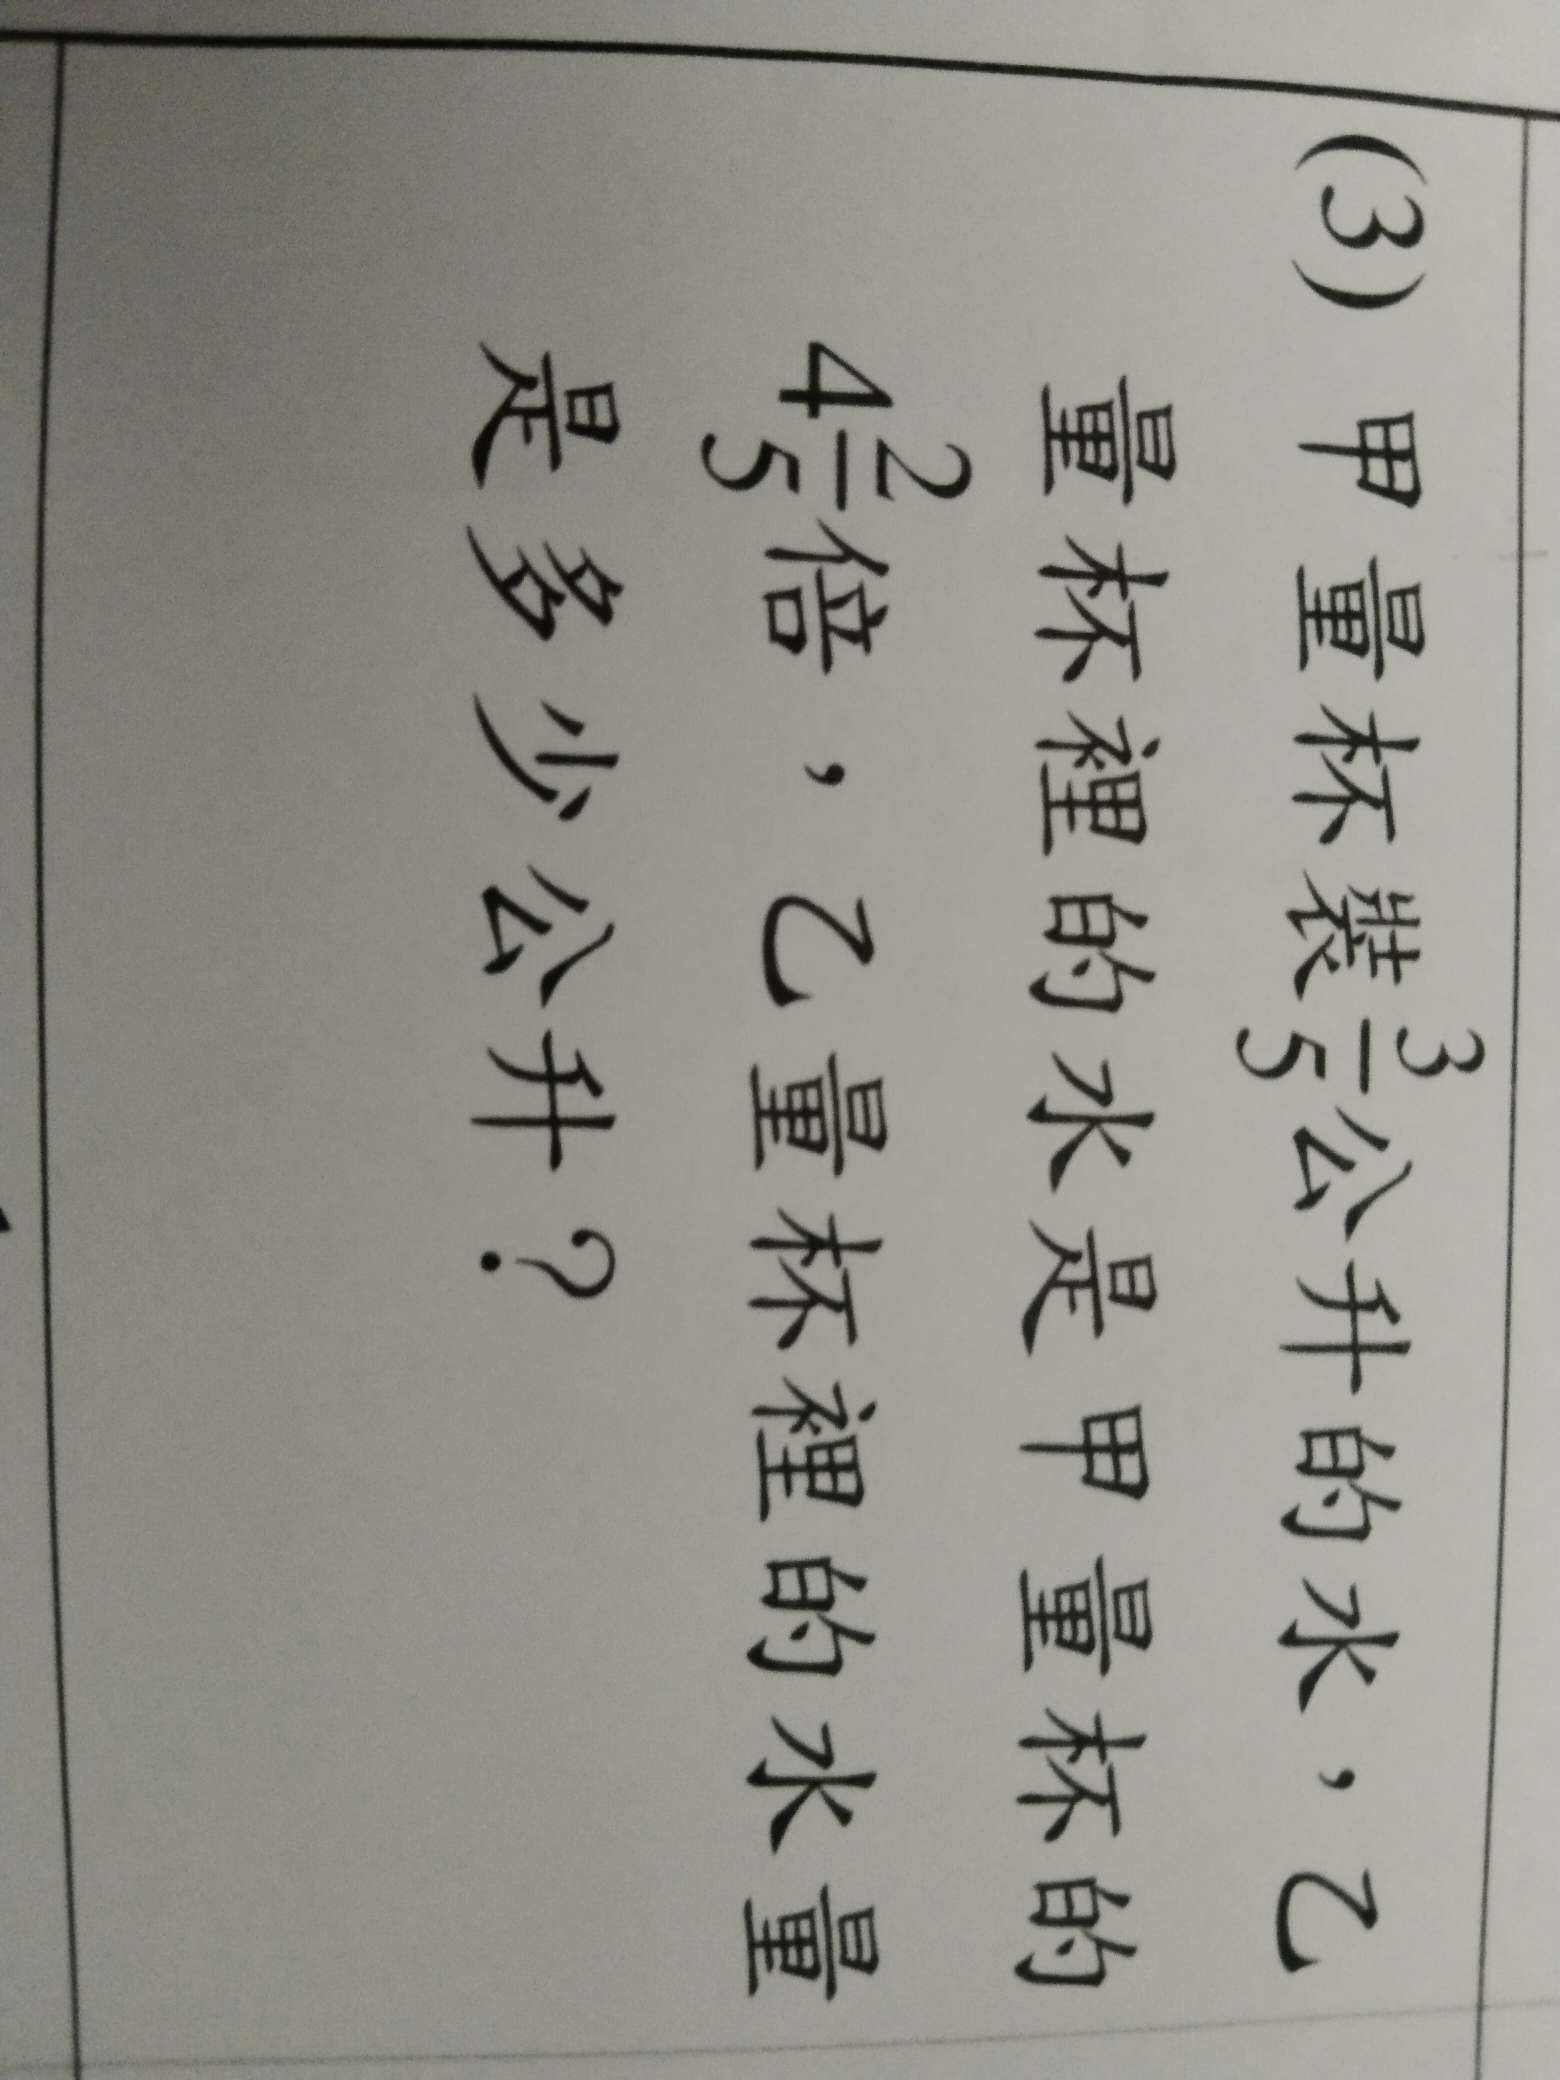 (3) 甲量杯裝3/5公升的水，乙
量杯裡的水是甲量杯的
4 2/5倍，乙量杯裡的水量
是多少公升？